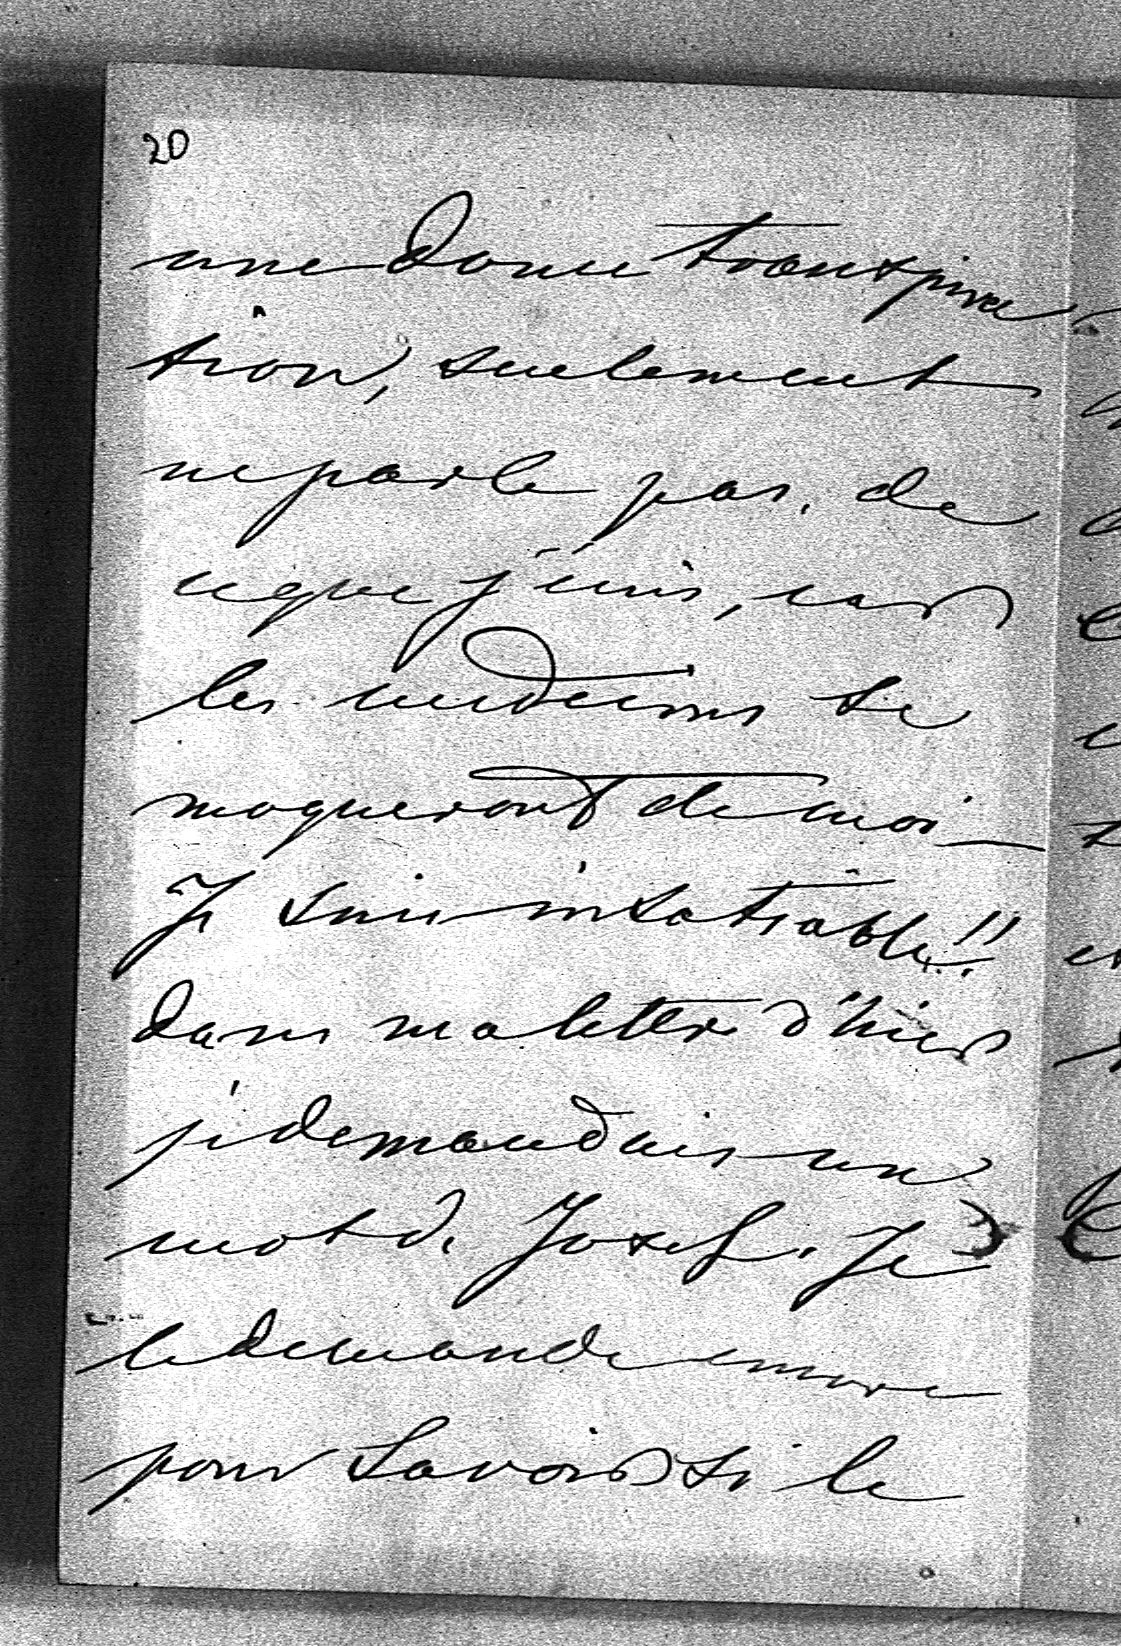 20
une douce transpira
tion, seulement
ne parle pas. de
ce que j'écris, car
les medecins se
moqueront de moi —
Je suis insatiable!!
dans ma lettre d'hier
je demandais un
mot de Josef. Je
le demande encore
pour savoir si le